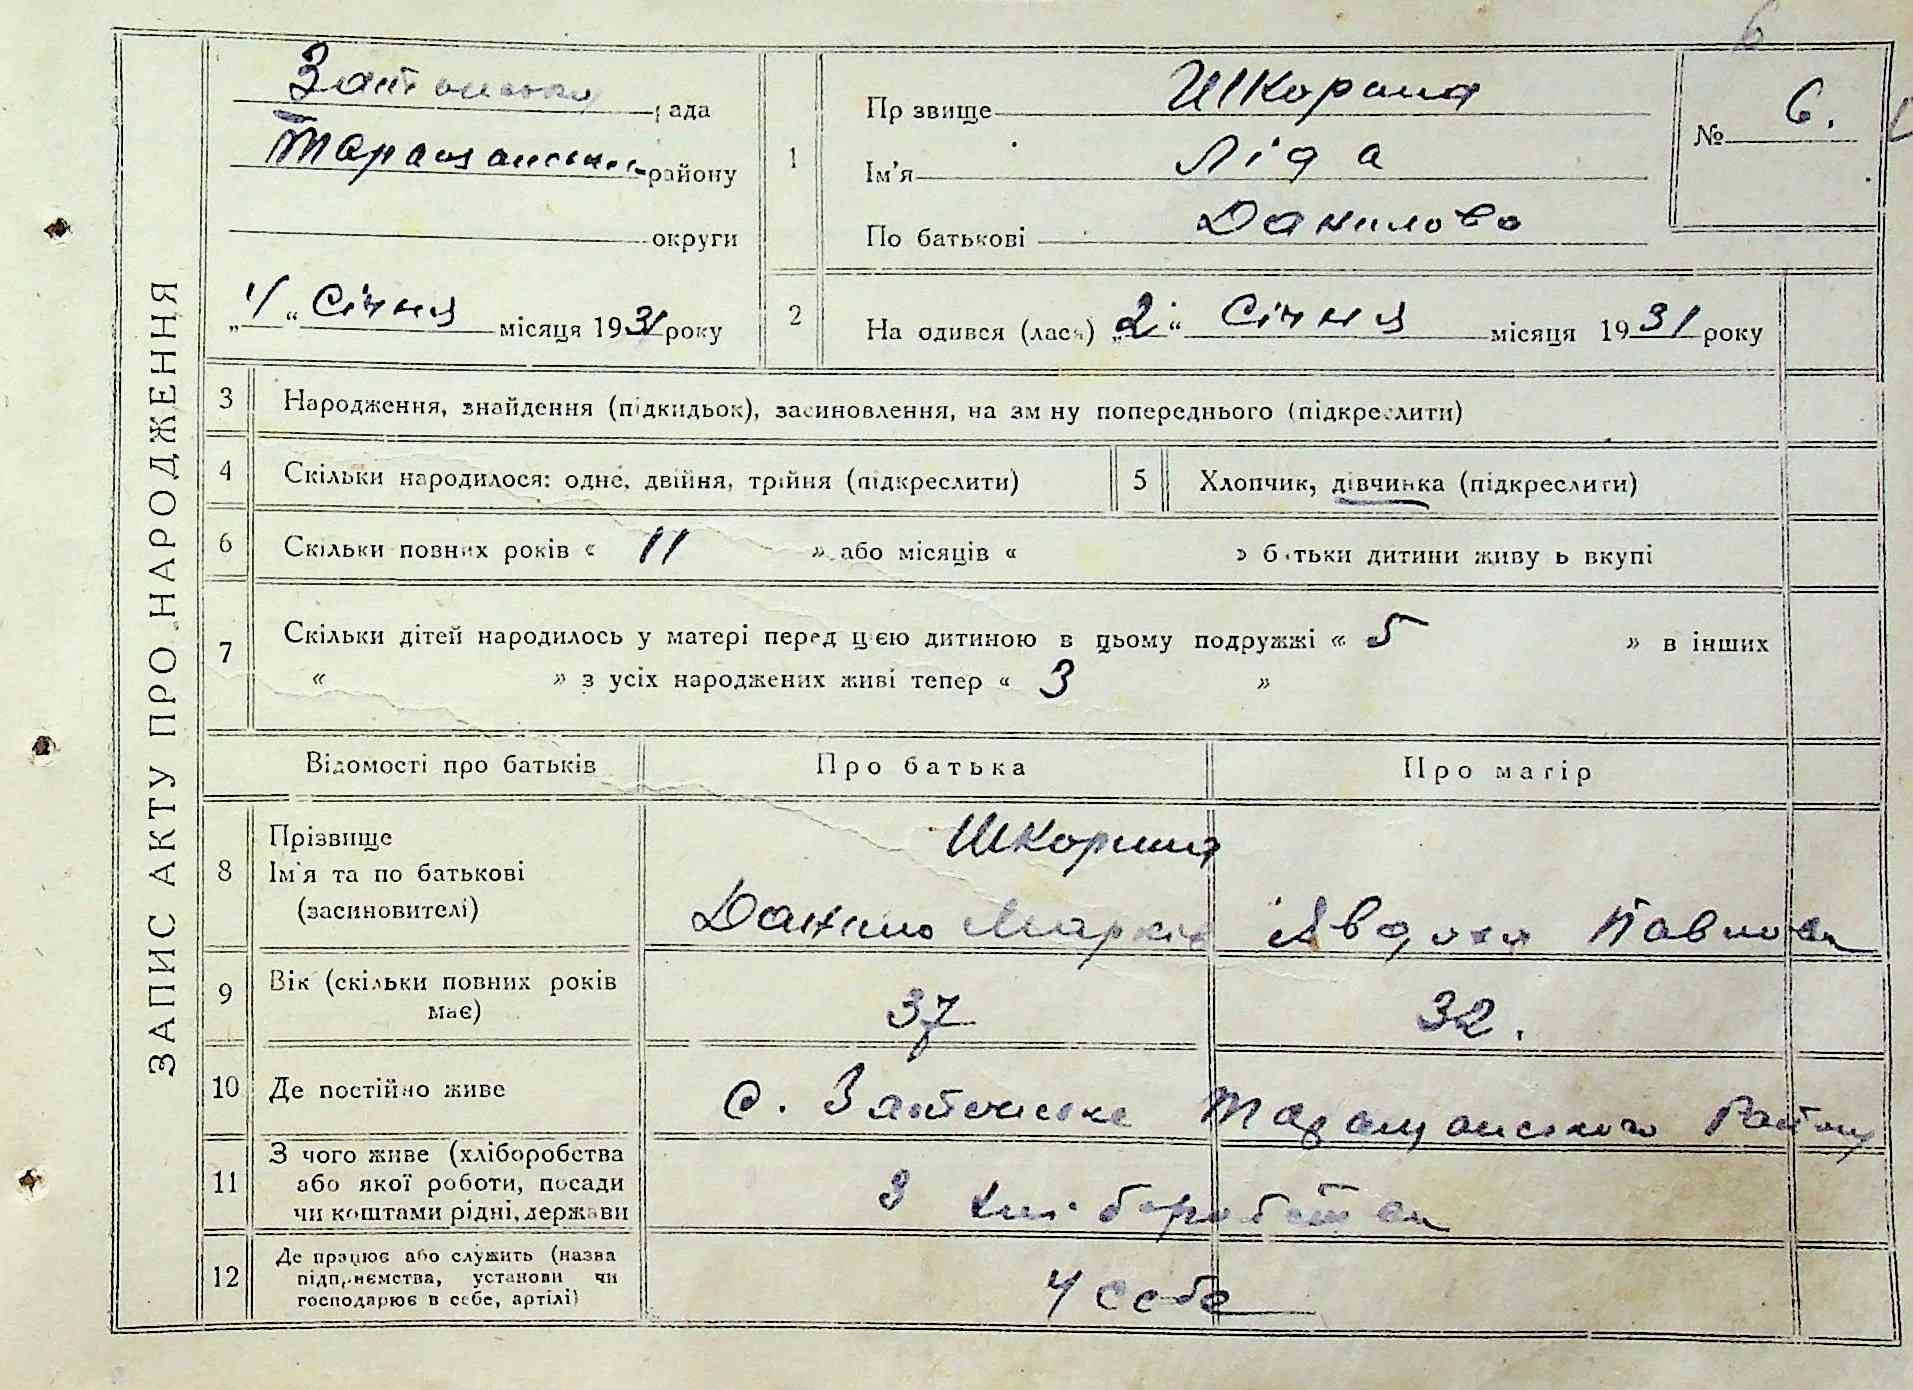 6
ЗАПИС АКТУ ПРО НАРОДЖЕННЯ
рада
Таращанського району
округи
„4“ Січня місяця 1931 року
1
Прізвище Шкорина
Ім'я Ліда
По батькові Данилова
№ 6.
2
Народився (лася) „2“ Січня місяця 1931 року
3 Народження, знайдення (підкидьок), засиновлення, на зміну попереднього (підкреслити)
4 Скільки народилося: одне, двійня, трійня (підкреслити)
5 Хлопчик, дівчинка (підкреслити)
6 Скільки повних років « 11 » або місяців « » батьки дитини живуть вкупі
7 Скільки дітей народилось у матері перед цією дитиною в цьому подружжі « 5 » в інших
« » з усіх народжених живі тепер « 3 »
Відомості про батьків
Про батька
Про матір
8 Прізвище
Ім'я та по батькові
(засиновителі)
Шкорина
Данило Марків
Явдоха Павлова
9 Вік (скільки повних років
має)
37
32.
10 Де постійно живе
с. Таращанського Району
11 З чого живе (хліборобства
або якої роботи, посади
чи коштами рідні, держави
З хліборобства
12 Де працює або служить (назва
підприємства, установи чи
господарює в себе, артілі)
У себе